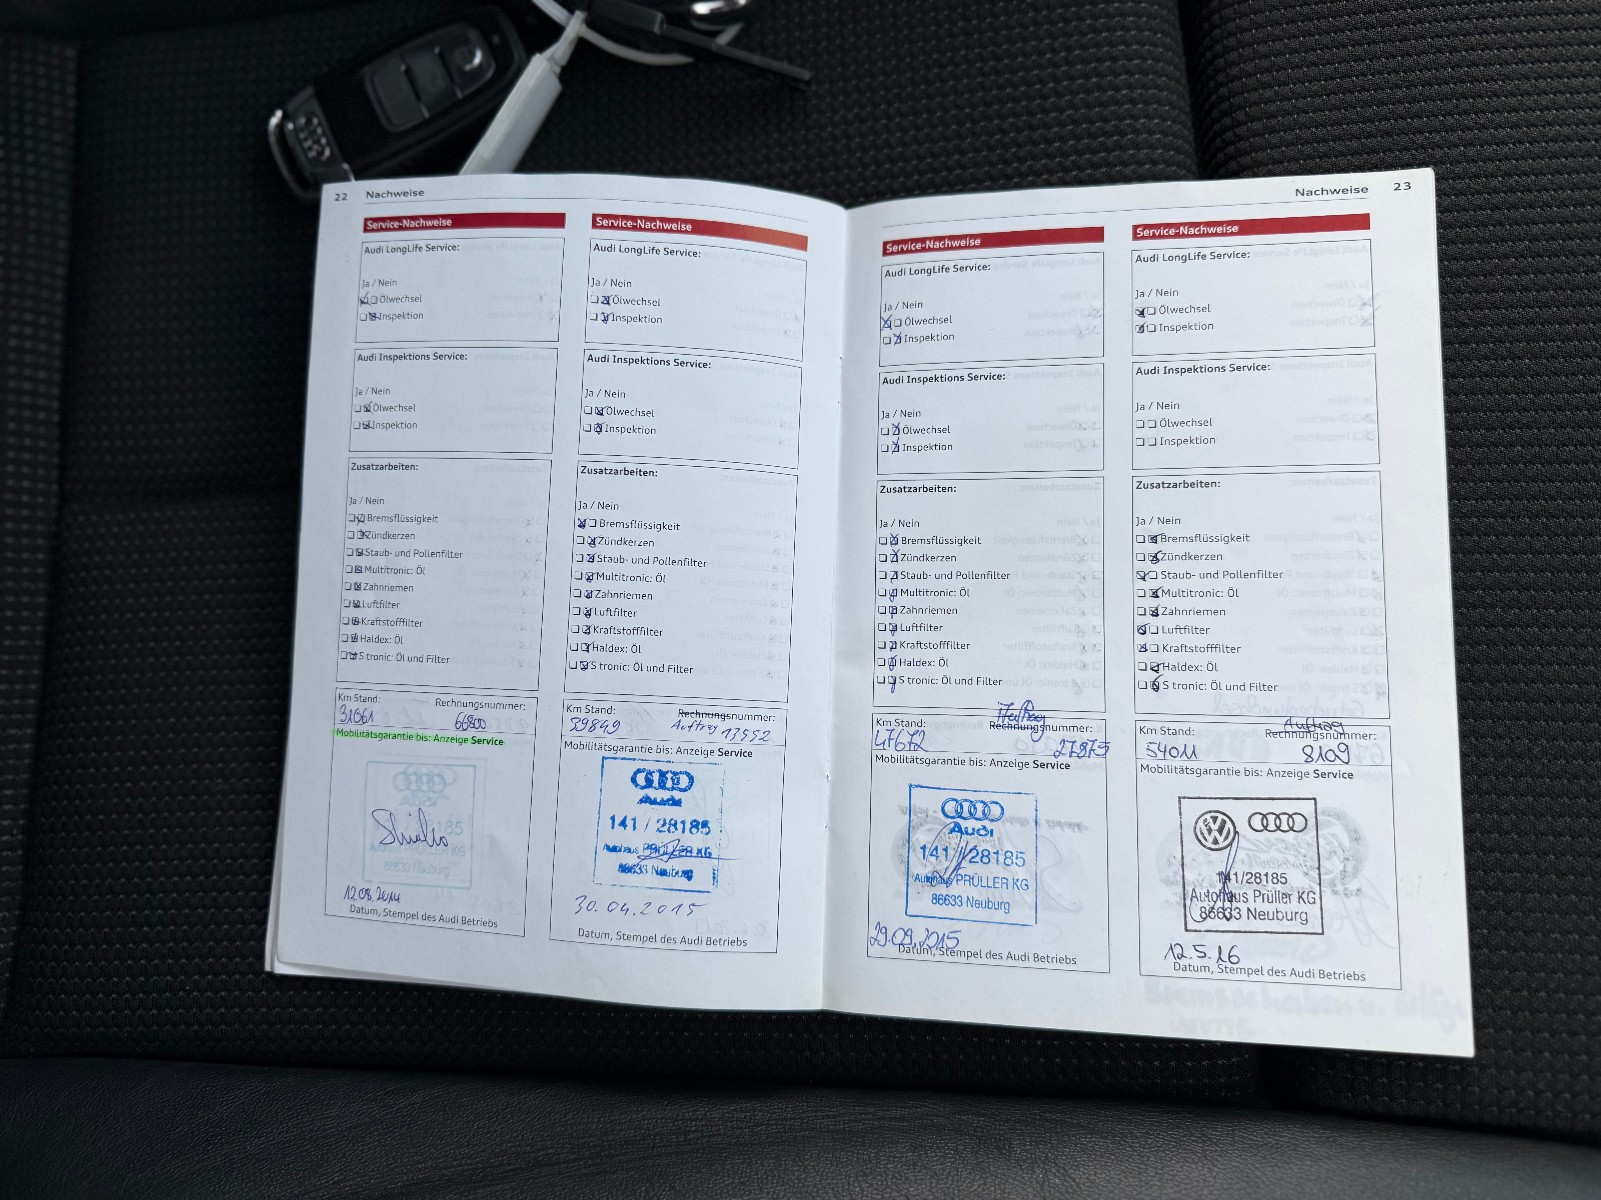 22 Nachweise
Service-Nachweise
Audi LongLife Service:
Ja / Nein
Ölwechsel
Inspektion
Audi Inspektions Service:
Ja / Nein
Ölwechsel
Inspektion
Zusatzarbeiten:
Ja / Nein
Bremsflüssigkeit
Zündkerzen
Staub- und Pollenfilter
Multitronic: Öl
Zahnriemen
Luftfilter
Kraftstofffilter
Haldex: Öl
S tronic: Öl und Filter
Km Stand: Rechnungsnummer:
31661 66800
Mobilitätsgarantie bis: Anzeige Service
12.08.2014
Datum, Stempel des Audi Betriebs
Service-Nachweise
Audi LongLife Service:
Ja / Nein
Ölwechsel
Inspektion
Audi Inspektions Service:
Ja / Nein
Ölwechsel
Inspektion
Zusatzarbeiten:
Ja / Nein
Bremsflüssigkeit
Zündkerzen
Staub- und Pollenfilter
Multitronic: Öl
Zahnriemen
Luftfilter
Kraftstofffilter
Haldex: Öl
S tronic: Öl und Filter
Km Stand: Rechnungsnummer:
39849 Auftrag 13552
Mobilitätsgarantie bis: Anzeige Service
Audi
141 / 28185
Autohaus PRÜLLER KG
86633 Neuburg
30.04.2015
Datum, Stempel des Audi Betriebs
Nachweise 23
Service-Nachweise
Audi LongLife Service:
Ja / Nein
Ölwechsel
Inspektion
Audi Inspektions Service:
Ja / Nein
Ölwechsel
Inspektion
Zusatzarbeiten:
Ja / Nein
Bremsflüssigkeit
Zündkerzen
Staub- und Pollenfilter
Multitronic: Öl
Zahnriemen
Luftfilter
Kraftstofffilter
Haldex: Öl
S tronic: Öl und Filter
Auftrag
Km Stand: Rechnungsnummer:
47672 27875
Mobilitätsgarantie bis: Anzeige Service
Audi
141/28185
Autohaus PRÜLLER KG
86633 Neuburg
29.09.2015
Datum, Stempel des Audi Betriebs
Service-Nachweise
Audi LongLife Service:
Ja / Nein
Ölwechsel
Inspektion
Audi Inspektions Service:
Ja / Nein
Ölwechsel
Inspektion
Zusatzarbeiten:
Ja / Nein
Bremsflüssigkeit
Zündkerzen
Staub- und Pollenfilter
Multitronic: Öl
Zahnriemen
Luftfilter
Kraftstofffilter
Haldex: Öl
S tronic: Öl und Filter
Auftrag
Km Stand: Rechnungsnummer:
54011 8109
Mobilitätsgarantie bis: Anzeige Service
141/28185
Autohaus Prüller KG
86633 Neuburg
12.5.16
Datum, Stempel des Audi Betriebs